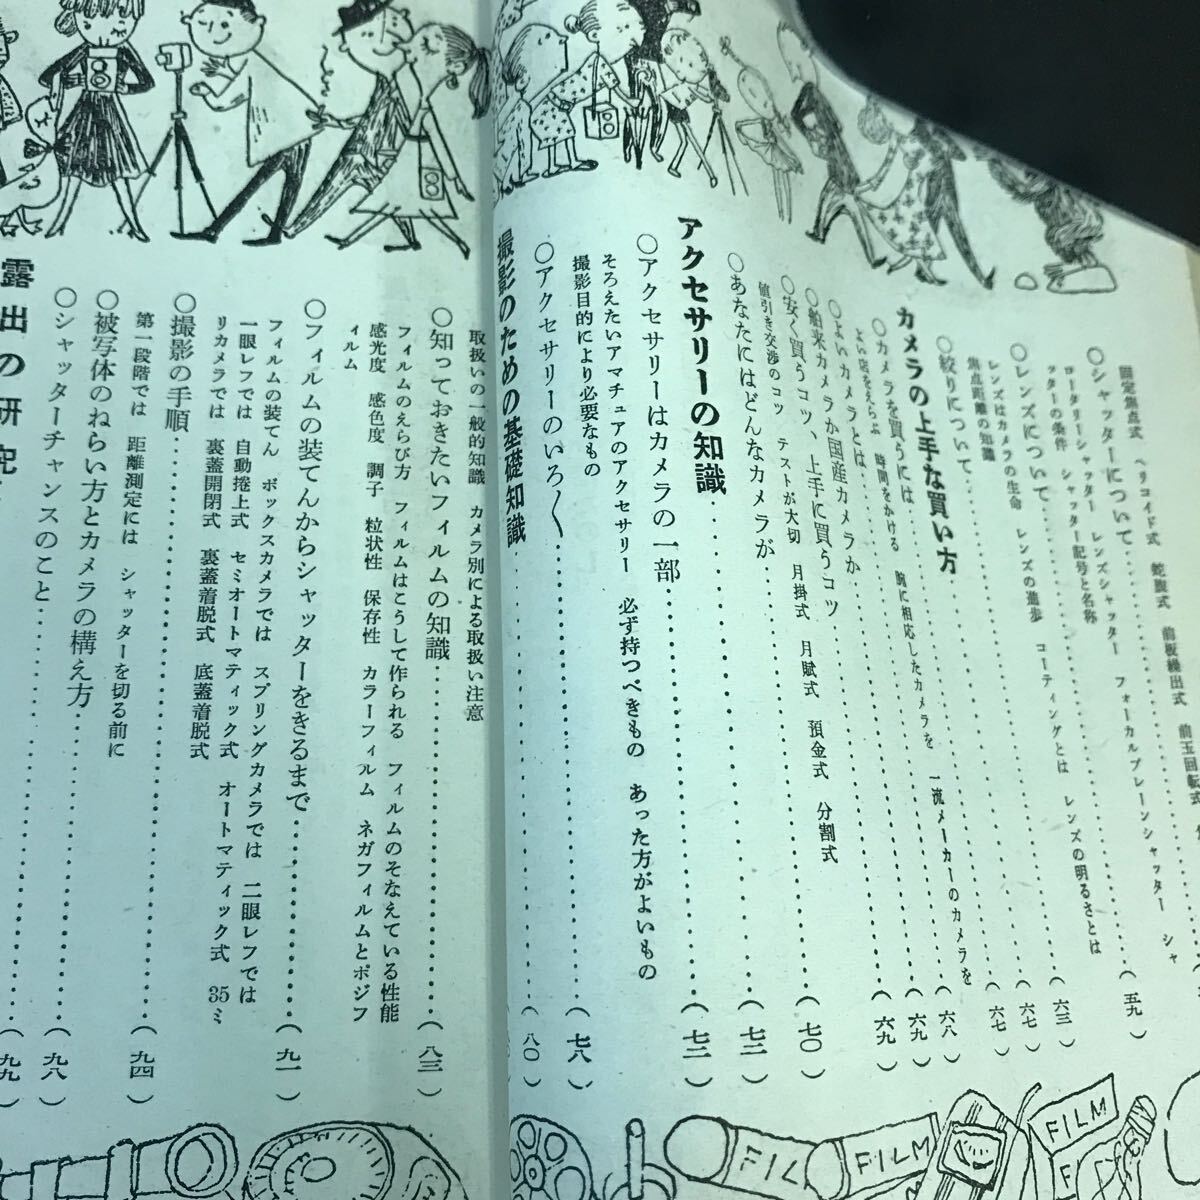 固定焦点式　ヘリコイド式　蛇腹式　前板繰出式　前玉回転式
○シャッターについて……(五九)
ロータリーシャッター　レンズシャッター　フォーカルプレーンシャッター　シャ
ッターの条件　シャッター記号と名称
○レンズについて……(六三)
レンズはカメラの生命　レンズの進歩　コーティングとは　レンズの明るさとは
焦点距離の知識
○絞りについて……(六七)
カメラの上手な買い方……(六七)
○カメラを買うには……(六八)
よい店をえらぶ　時間をかける　腕に相応したカメラを　一流メーカーのカメラを
○よいカメラとは……(六九)
○舶来カメラか国産カメラか……(六九)
○安く買うコツ、上手に買うコツ……(七〇)
値引き交渉のコツ　テストが大切　月掛式　月賦式　預金式　分割式
○あなたにはどんなカメラが……(七二)
アクセサリーの知識……(七二)
○アクセサリーはカメラの一部……(七二)
そろえたいアマチュアのアクセサリー　必ず持つべきもの　あった方がよいもの
撮影目的により必要なもの
○アクセサリーのいろ〱……(七八)
撮影のための基礎知識……(八〇)
取扱いの一般的知識　カメラ別による取扱い注意
○知っておきたいフィルムの知識……(八三)
フィルムのえらび方　フィルムはこうして作られる　フィルムのそなえている性能
感光度　感色度　調子　粒状性　保存性　カラーフィルム　ネガフィルムとポジフ
ィルム
○フィルムの装てんからシャッターをきるまで……(九一)
フィルムの装てん　ボックスカメラでは　スプリングカメラでは　二眼レフでは
一眼レフでは　自動捲上式　セミオートマティック式　オートマティック式　35ミ
リカメラでは　裏蓋開閉式　裏蓋着脱式　底蓋着脱式
○撮影の手順……(九四)
第一段階では　距離測定には　シャッターを切る前に
○被写体のねらい方とカメラの構え方……(九八)
○シャッターチャンスのこと……(九九)
露出の研究
FILM
FILM
FILM